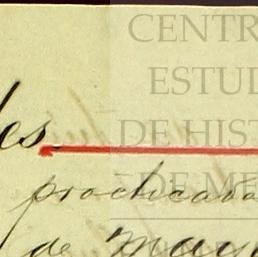 CENTR
ESTUD
DE HIST
DE ME
les
practicada
de mayo